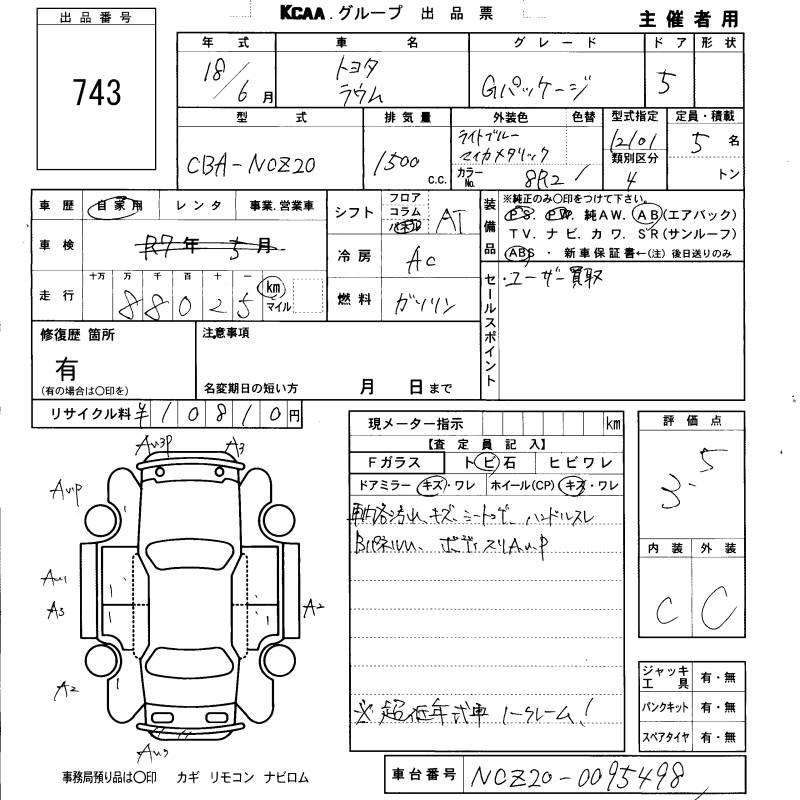 出品番号
743
KCAA.グループ 出品票
主催者用
年式 車名 グレード ドア 形状
18/6月 トヨタ ラウム Gパッケージ 5
型式 排気量 外装色 色替 型式指定 定員・積載
CBA-NCZ20 1500 c.c. ライトブルーマイカメタリック 12101 5名
カラーNo. 8R2 類別区分 4 トン
車歴 自家用 レンタ 事業.営業車
車検 R7年 5月
走行 十万 万 千 百 十 一 km マイル
88025
シフト フロア コラム パネル AT
冷房 AC
燃料 ガソリン
装備品 ※純正のみ〇印をつけて下さい。
P.S. P.W. 純AW. AB(エアバック)
TV. ナビ. カワ. SR(サンルーフ)
ABS ・ 新車保証書←(注)後日送りのみ
セールスポイント
・ユーザー買取
修復歴 箇所
有
(有の場合は〇印を)
注意事項
名変期日の短い方 月 日まで
リサイクル料 ¥10810円
現メーター指示 km
【査定員記入】
Fガラス トビ石 ヒビワレ
ドアミラー キズ・ワレ ホイール(CP) キズ・ワレ
車内各汚れ、キズ、シートコゲ、ハンドルスレ
Bパネルu、ボディスリAuP
※超低年式車 ノークレーム!
評価点
3.5
内装 外装
C C
ジャッキ工具 有・無
パンクキット 有・無
スペアタイヤ 有・無
Au3P A3
AuP
Au1
A3
A2
A2
Au2
事務局預り品は〇印 カギ リモコン ナビロム
車台番号 NCZ20-0095498